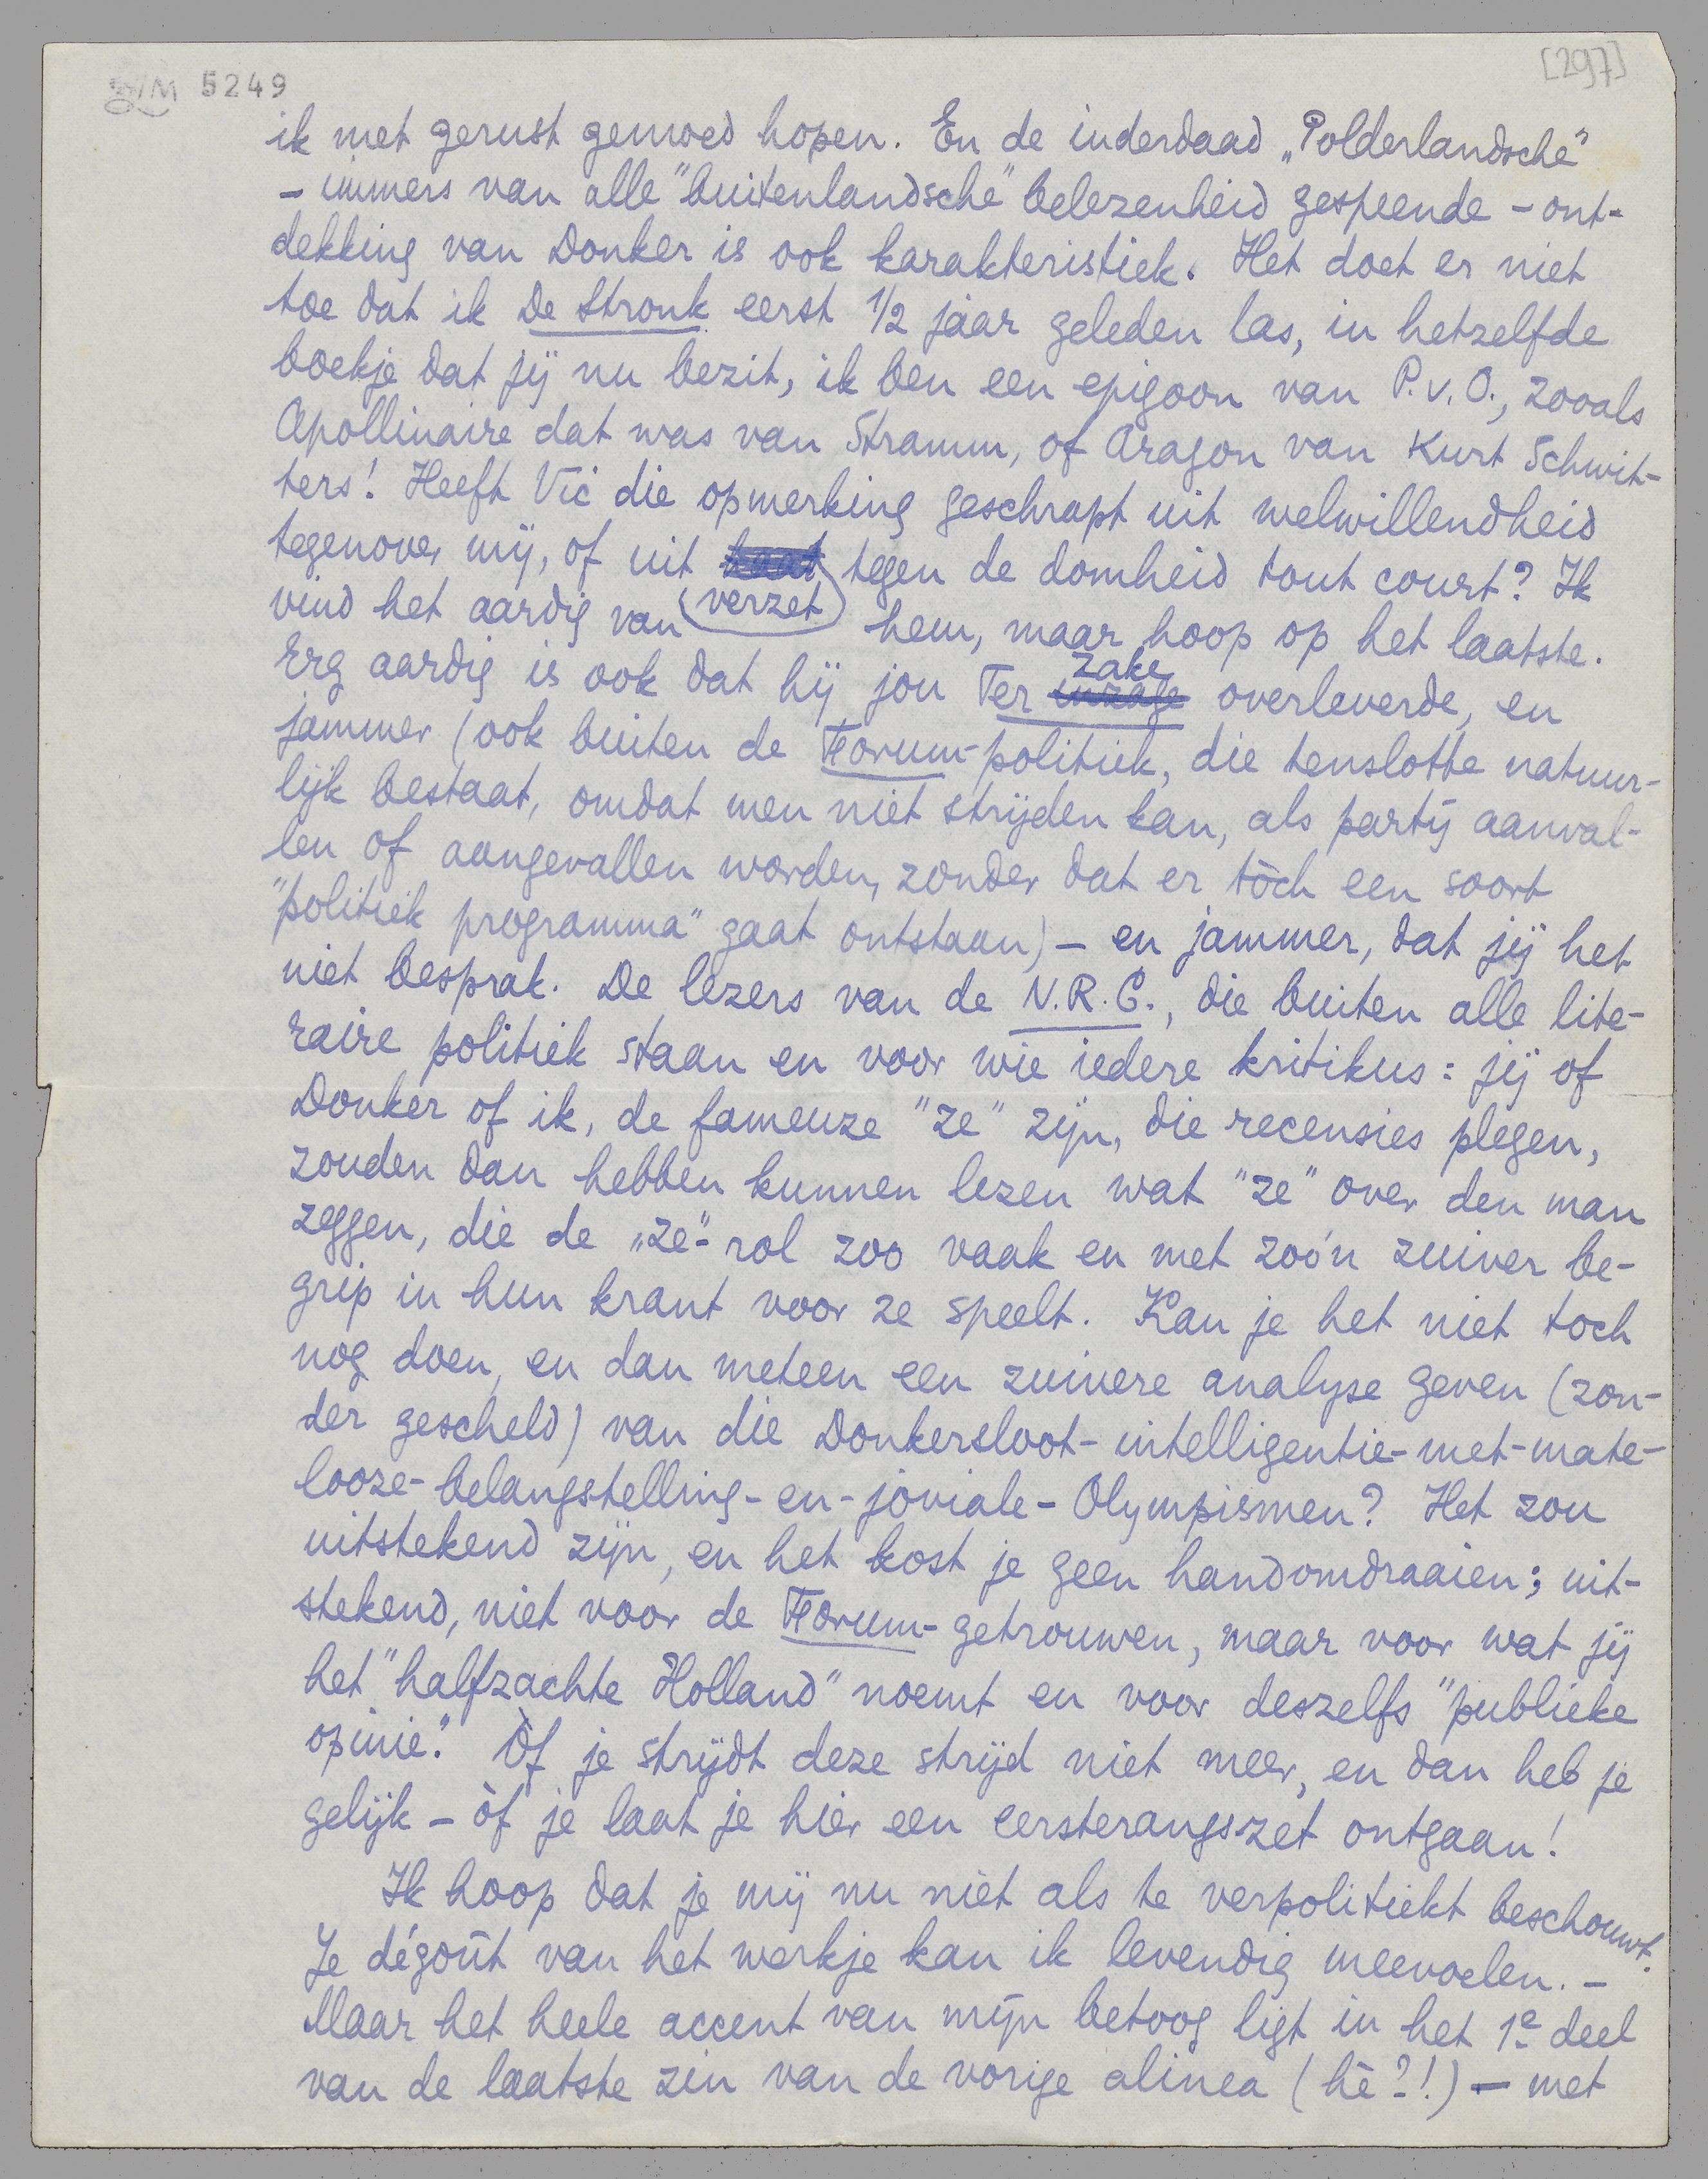 5249
[297]
ik met gerust gemoed hopen. En de inderdaad „Polderlandsche"
– immers van alle "buitenlandsche" belezenheid gespeende – ont-
dekking van Donker is ook karakteristiek. Het doet er niet
toe dat ik De Stronk eerst 1/2 jaar geleden las, in hetzelfde
boekje dat jij nu bezit, ik ben een epigoon van P.v.O., zooals
Apollinaire dat was van Stramm, of Aragon van Kurt Schwit-
ters! Heeft Vic die opmerking geschrapt uit welwillendheid
tegenover mij, of uit haat tegen de domheid tout court? Ik
verzet
vind het aardig van hem, maar hoop op het laatste.
zake
Erg aardig is ook dat hij jou Ter inzage overleverde, en
jammer (ook buiten de Forum-politiek, die tenslotte natuur-
lijk bestaat, omdat men niet strijden kan, als partij aanval-
len of aangevallen worden, zonder dat er tòch een soort
"politiek programma" gaat ontstaan) – en jammer, dat jij het
niet besprak. De lezers van de N.R.C., die buiten alle lite-
raire politiek staan en voor wie iedere kritikus: jij of
Donker of ik, de fameuze "ze" zijn, die recensies plegen,
zouden dan hebben kunnen lezen wat "ze" over den man
zeggen, die de „ze"-rol zoo vaak en met zoo'n zuiver be-
grip in hun krant voor ze speelt. Kan je het niet toch
nog doen, en dan meteen een zuivere analyse geven (zon-
der gescheld) van die Donkersloot-intelligentie-met-mate-
looze-belangstelling-en-joviale-Olympismen? Het zou
uitstekend zijn, en het kost je geen handomdraaien; uit-
stekend, niet voor de Forum-getrouwen, maar voor wat jij
het "halfzachte Holland" noemt en voor deszelfs "publieke
opinie". Òf je strijdt deze strijd niet meer, en dan heb je
gelijk – òf je laat je hier een eersterangszet ontgaan!
Ik hoop dat je mij nu niet als te verpolitiekt beschouwt.
Je dégoût van het werkje kan ik levendig meevoelen. –
Maar het heele accent van mijn betoog ligt in het 1e deel
van de laatste zin van de vorige alinea (hè?!) – met